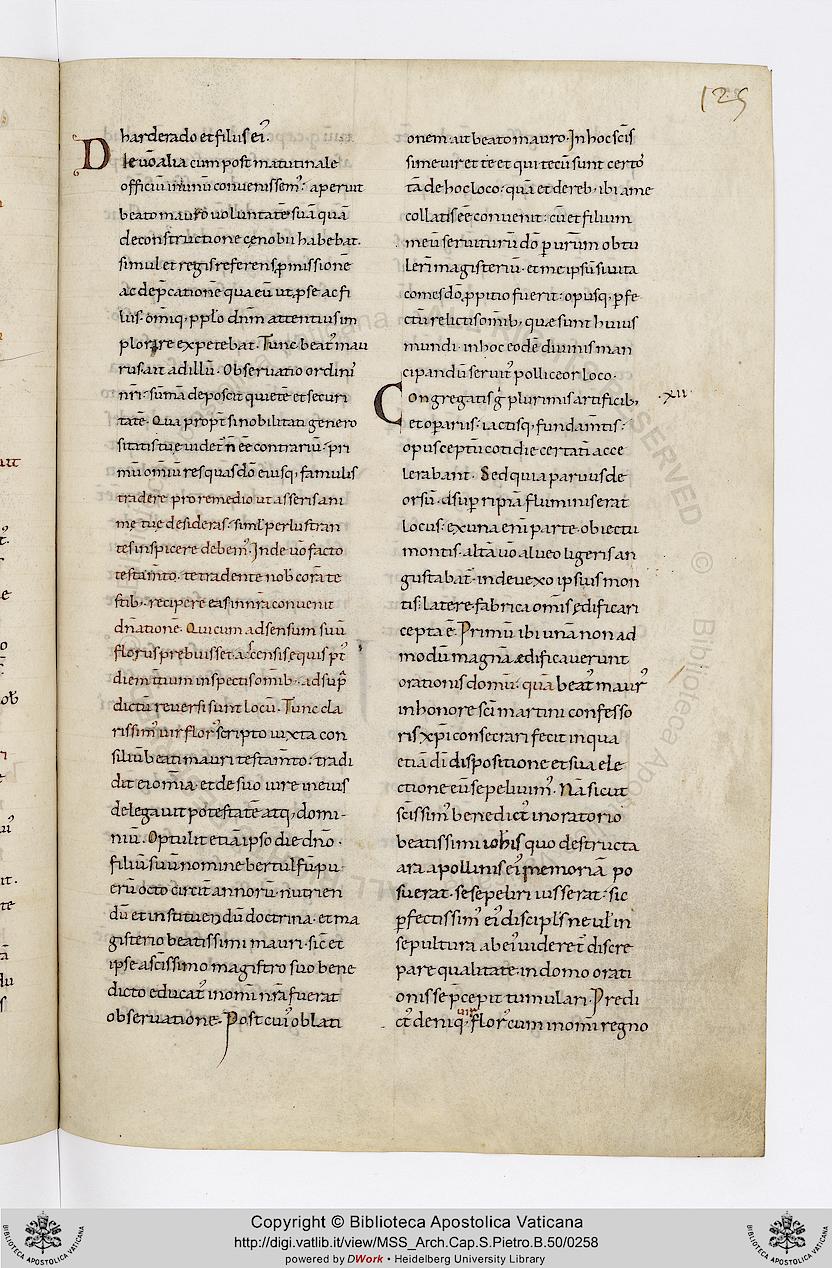 125
harderado et filiis ei᾽.
Die ūo alia cum post matutinale
officiū in unū convenissem᾽: aperuit
beato mauro voluntatē suā quā
de constructione cęnobii habebat.
simul et regis referens p̱missione
ac dep̄catione qua eū ut p̱ se ac fi
liis omiq; pp̱lo dnm attentius im
plorare expetebat. Tunc beat᾽ mau
rus ait ad illū. Observatio ordinis
nr̄i· sūmā deposcit quietē et securi
tatē. Qua propt̄ si nobilitati genero
sitatis tuę videt᾽ n̄ eē contrariū· pri
mū omiū res quas dō eiusq; famulis
tradere pro remedio ut asseris ani
mę tuę desideras· siml̄ perlustran
tes inspicere debem᾽. Inde ūo facto
testam̄to· te tradente nob̄ corā te
stib;· recipere eas in nr̄a convenit
dn̄atione. Qui cum adsensum suū
florus prebuisset· ascensis equis p᾽t
diem tium inspectis omib;· ad sup̱
dictū reversi sunt locū. Tunc cla
rissim᾽ vir flor᾽ scripto iuxta con
siliū beati mauri testam̄to: tradi
dit ei omīa· et de suo iure in eius
delegavit potestatē atq; domi-
niū. Optulit etiā ipso die dn̄o·
filiū suū nomine bertulfū pu
erū octo circit̄ annorū· nutrien
dū et instituendū doctrina· et ma
gisterio beatissimi mauri· sic̄ et
ipse a sc̄issimo magistro suo bene
dicto educat᾽ in omi nr̄a fuerat
observatione. Post cui᾽ oblati
onem· ait beato mauro. In hoc scis
sime vir et te et qui tecū sunt certo᾽
tā de hoc loco· quā et de reb; ibi a me
collatis eē convenit: cū et filium
meū serviturū dō p̱ urūm obtu
lerī magisterium· et me ipsū si vita
comes dō p̱pitio fuerit: opusq; p̱fe
ctū relictis omib; quę sunt huius
mundi· in hoc eodē divinis man
cipandū servitiis polliceor loco·
Congregatis g̊ plurimis artificib; ·XII·
et op̱ariis· iactisq; fundam̄tis·
opus ceptū cotidie certati acce
lerabant. Sed quia parvus de
orsū· dsup̱ ripā fluminis erat
locus· ex una eni parte obiectu
montis· altā ūo alveo ligeris an
gustabat· in devexo ipsius mon
tis latere fabrica omīs ędificari
cepta ē. Primū ibi unā non ad
modū magnā ædificaverunt
orationis domū: quā beat᾽ maur᾽
in honore sc̄i martini confesso
ris xp̄i consecrari fecit in qua
etiā di dispositione et sua ele
ctione eū sepelivim᾽. Nā sicut
sc̄issim᾽ benedict᾽ in oratorio
beatissimi ioh̄is quo destructa
ara apollinis ei᾽ memoriā po
suerat· se sepeliri iusserat· sic
p̱fectissim᾽ ei᾽ discipl̄s ne ul̄ in
sepultura ab ei᾽ videret᾽ discre
pare qualitate· in domo orati
onis se p̄cepit tumulari. Predi
ct᾽ deniq; vir flor᾽ cum in omi regno
Copyright © Biblioteca Apostolica Vaticana
http://digi.vatlib.it/view/MSS_Arch.Cap.S.Pietro.B.50/0258
powered by DWork • Heidelberg University Library